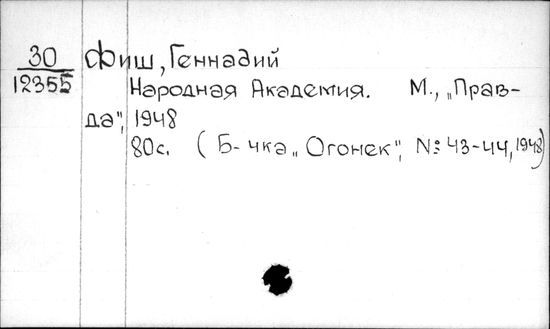 30
12355
Фиш, Геннадий
Народная Академия. М., „Прав-
да", 1948
80с. (Б-чка „Огонек", №43-44, 1948)